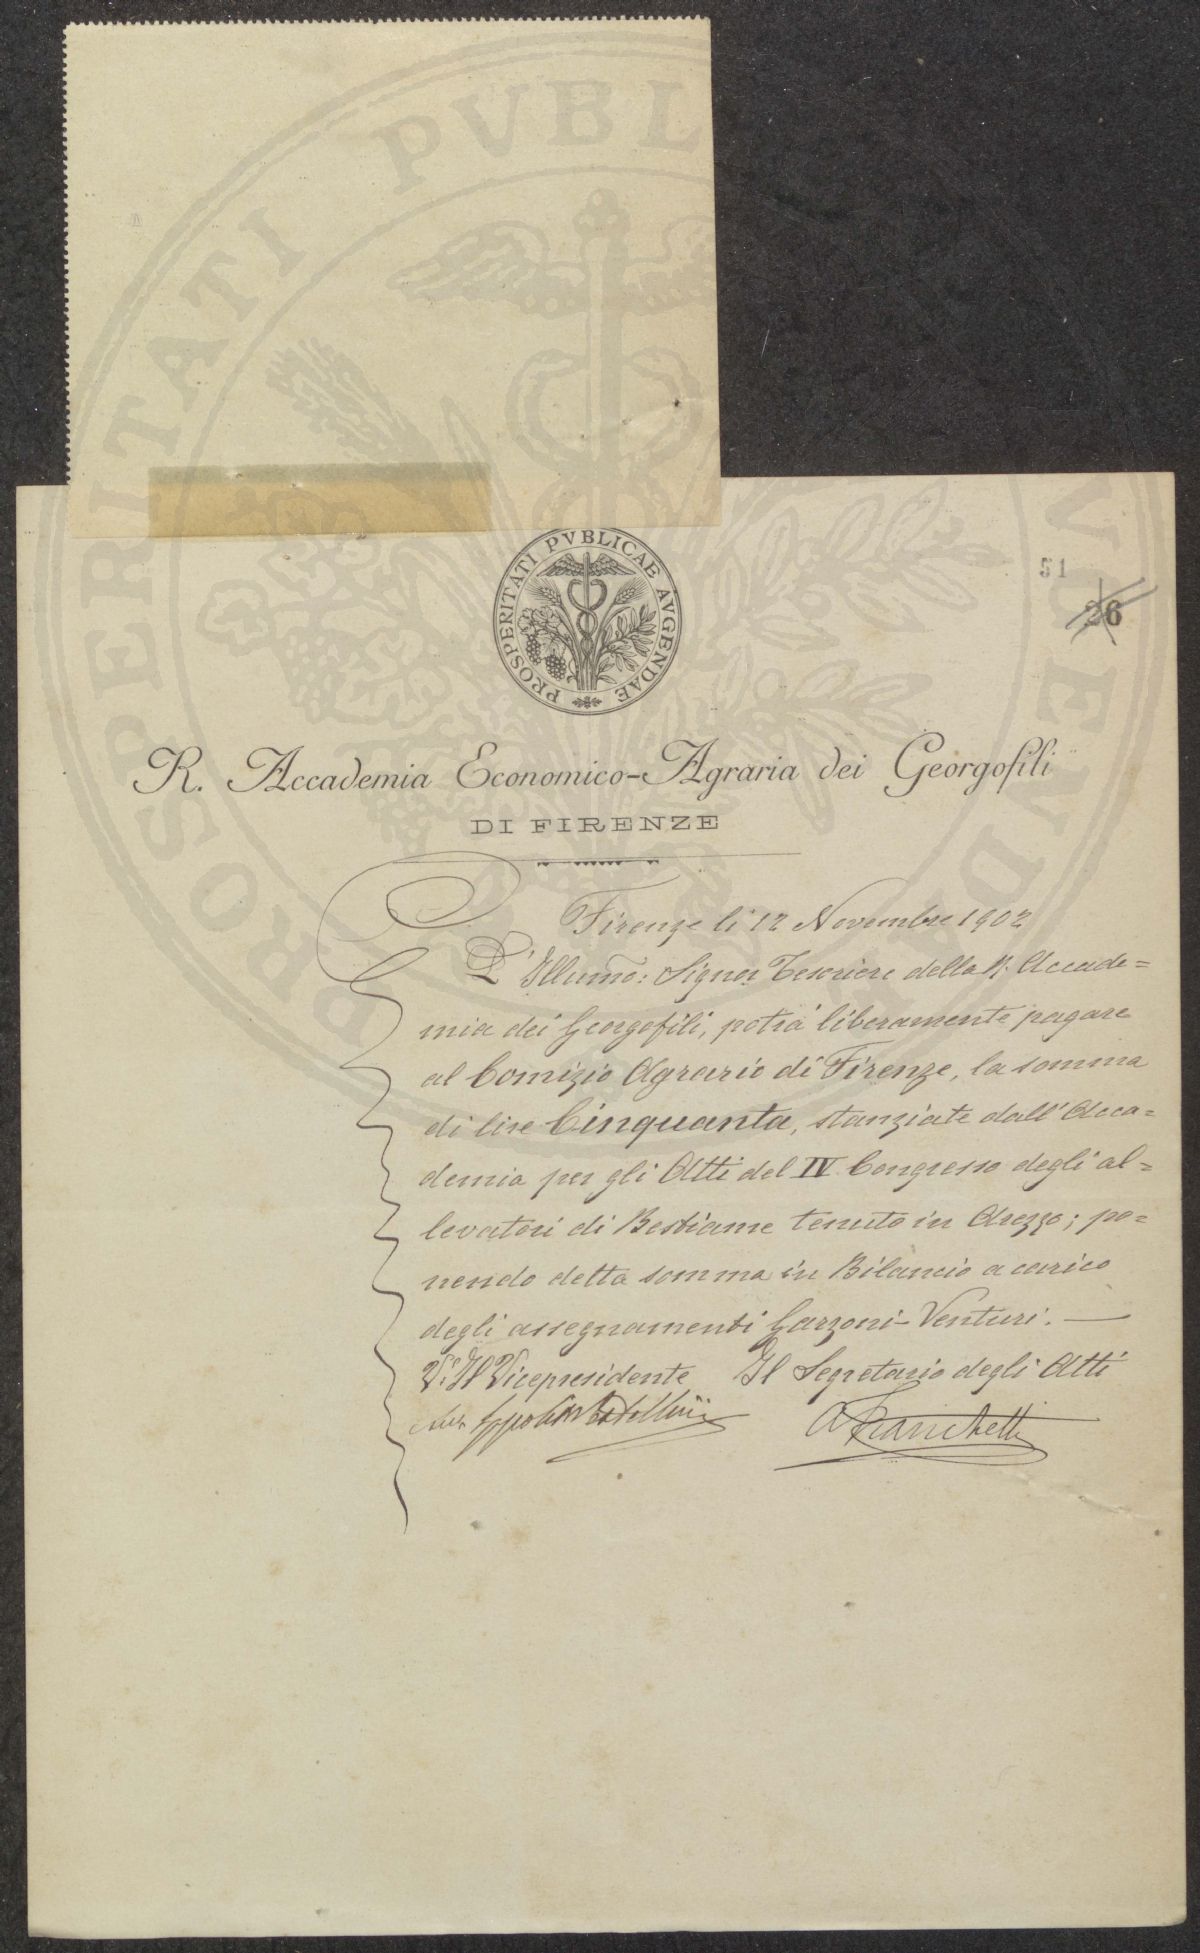 PROSPERITATI PVBLICAE AVGENDAE
51
26
R. Accademia Economico-Agraria dei Georgofili
DI FIRENZE
Firenze li 12 Novembre 1902
L'Illumo: Signor Tesoriere della R. Accade=
mia dei Georgofili, potrà liberamente pagare
al Comizio Agrario di Firenze, la somma
di lire Cinquanta, stanziate dall'Acca=
demia per gli Atti del IV Congresso degli al=
levatori di Bestiame tenuto in Arezzo; po=
nendo detta somma in Bilancio a carico
degli assegnamenti Garzoni-Venturi. —
V° Il Vicepresidente Il Segretario degli Atti
A Franchetti